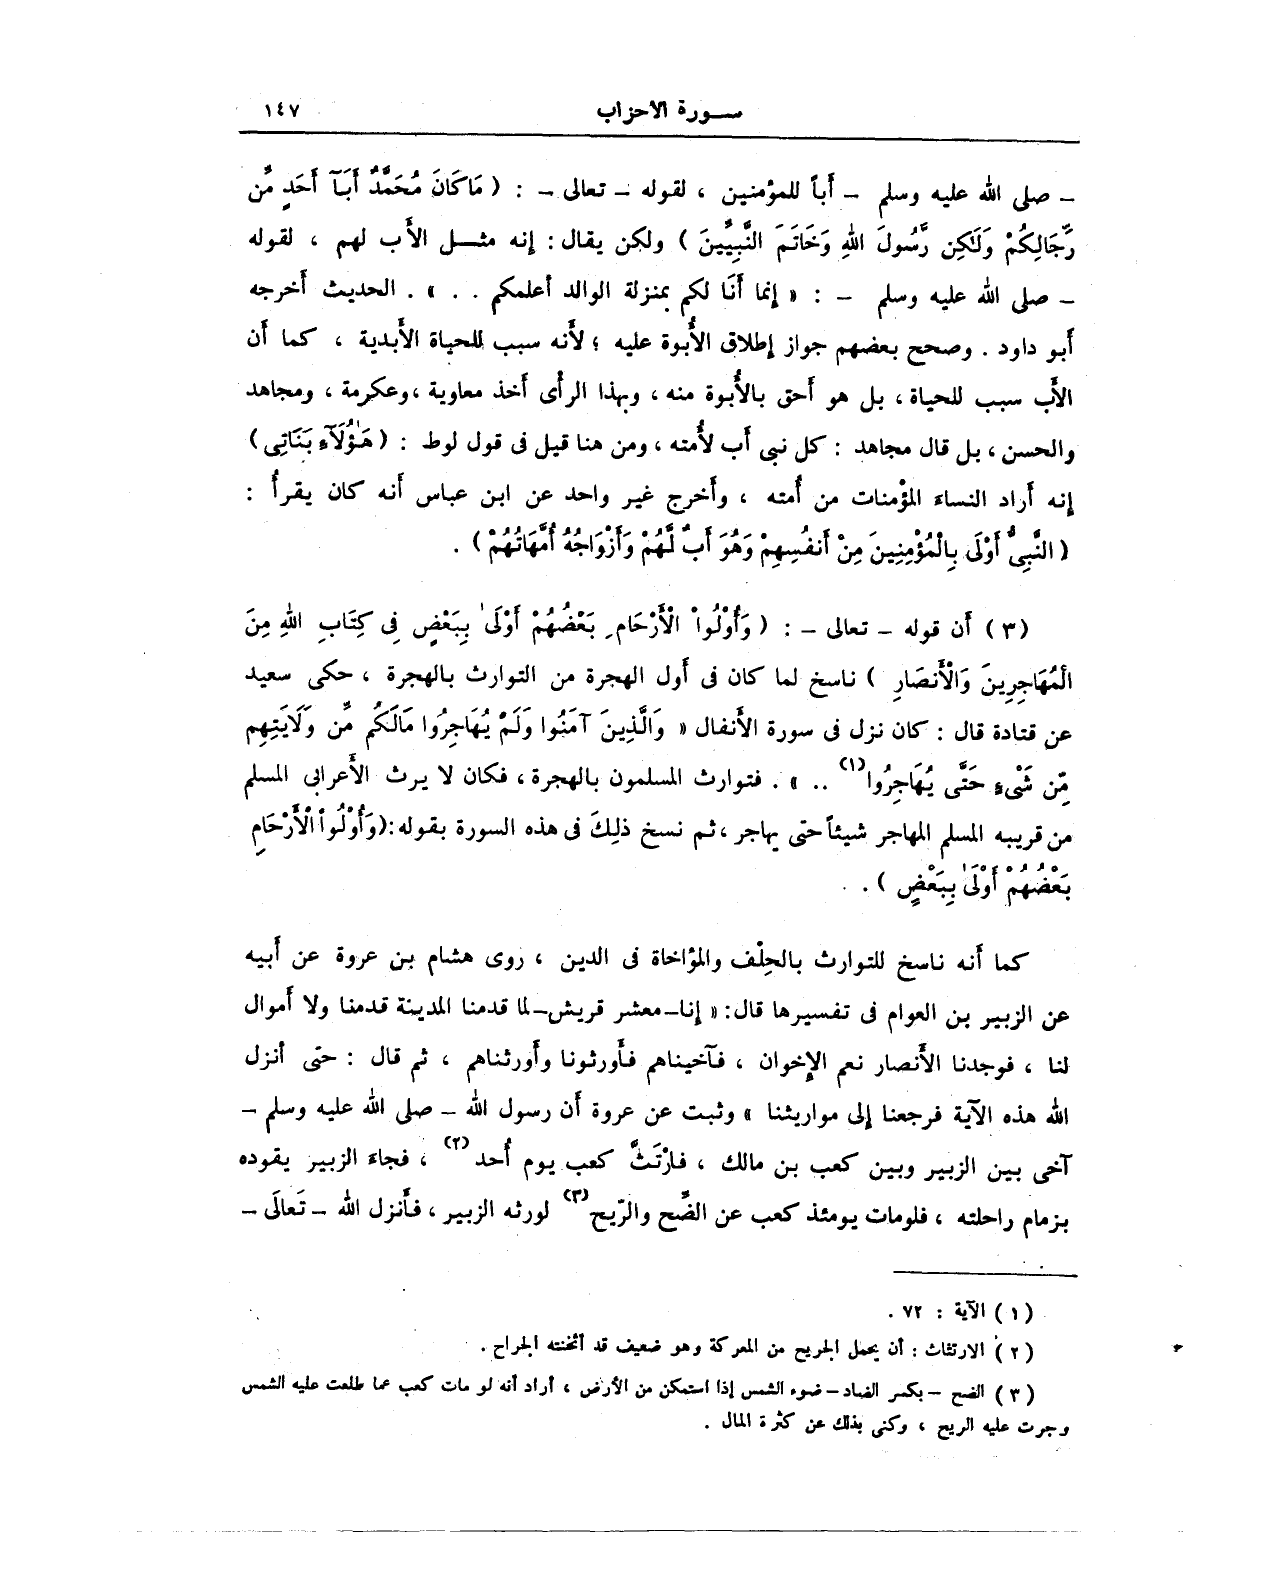 سورة الاحزاب ١٤٧
- صلى الله عليه وسلم - أباً للمؤمنين ، لقوله - تعالى - : ( مَاكَانَ مُحَمَّدٌ أَبَآ أَحَدٍ مِّن
رِّجَالِكُمْ وَلَٰكِن رَّسُولَ اللهِ وَخَاتَمَ النَّبِيِّينَ ) ولكن يقال : إنه مثل الأب لهم ، لقوله
- صلى الله عليه وسلم - : « إنما أَنَا لكم بمنزلة الوالد أعلمكم . . » . الحديث أخرجه
أبو داود . وصحح بعضهم جواز إطلاق الأُبوة عليه ؛ لأنه سبب للحياة الأبدية ، كما أن
الأب سبب للحياة ، بل هو أحق بالأُبوة منه ، وبهذا الرأى أخذ معاوية ، وعكرمة ، ومجاهد
والحسن ، بل قال مجاهد : كل نبى أب لأُمته ، ومن هنا قيل فى قول لوط : ( هَٰؤُلَآءِ بَنَاتِى )
إنه أراد النساء المؤمنات من أُمته ، وأخرج غير واحد عن ابن عباس أنه كان يقرأُ :
( النَّبِىُّ أَوْلَى بِالْمُؤْمِنِينَ مِنْ أَنفُسِهِمْ وَهُوَ أَبٌ لَّهُمْ وَأَزْوَاجُهُ أُمَّهَاتُهُمْ ) .
( ٣ ) أن قوله - تعالى - : ( وَأُوْلُواْ الْأَرْحَامِ بَعْضُهُمْ أَوْلَىٰ بِبَعْضٍ فِى كِتَابِ اللهِ مِنَ
الْمُهَاجِرِينَ وَالْأَنصَارِ ) ناسخ لما كان فى أول الهجرة من التوارث بالهجرة ، حكى سعيد
عن قتادة قال : كان نزل فى سورة الأنفال « وَالَّذِينَ آمَنُوا وَلَمْ يُهَاجِرُوا مَالَكُم مِّن وَلَايَتِهِم
مِّن شَىْءٍ حَتَّى يُهَاجِرُوا (١) .. » . فتوارث المسلمون بالهجرة ، فكان لا يرث الأعرابى المسلم
من قريبه المسلم المهاجر شيئاً حتى يهاجر ، ثم نسخ ذلِكَ فى هذه السورة بقوله : (وَأُوْلُواْ الْأَرْحَامِ
بَعْضُهُمْ أَوْلَىٰ بِبَعْضٍ ) .
كما أنه ناسخ للتوارث بالحِلْف والمؤاخاة فى الدين ، روى هشام بن عروة عن أبيه
عن الزبير بن العوام فى تفسيرها قال : « إنا - معشر قريش - لما قدمنا المدينة قدمنا ولا أموال
لنا ، فوجدنا الأنصار نعم الإخوان ، فآخيناهم فأورثونا وأورثناهم ، ثم قال : حتى أنزل
الله هذه الآية فرجعنا إلى مواريثنا » وثبت عن عروة أن رسول الله - صلى الله عليه وسلم -
آخى بين الزبير وبين كعب بن مالك ، فارْتَثَّ كعب يوم أُحد (٢) ، فجاءَ الزبير يقوده
بزمام راحلته ، فلومات يومئذ كعب عن الضِّح والرّيح (٣) لورثه الزبير ، فأنزل الله - تَعالَى -
( ١ ) الآية : ٧٢ .
( ٢ ) الارتثاث : أن يحمل الجريح من المعركة وهو ضعيف قد أثخنته الجراح .
( ٣ ) الضح - بكسر الضاد - ضوء الشمس إذا استمكن من الأرض ، أراد أنه لو مات كعب عما طلعت عليه الشمس
وجرت عليه الريح ، وكنى بذلك عن كثرة المال .